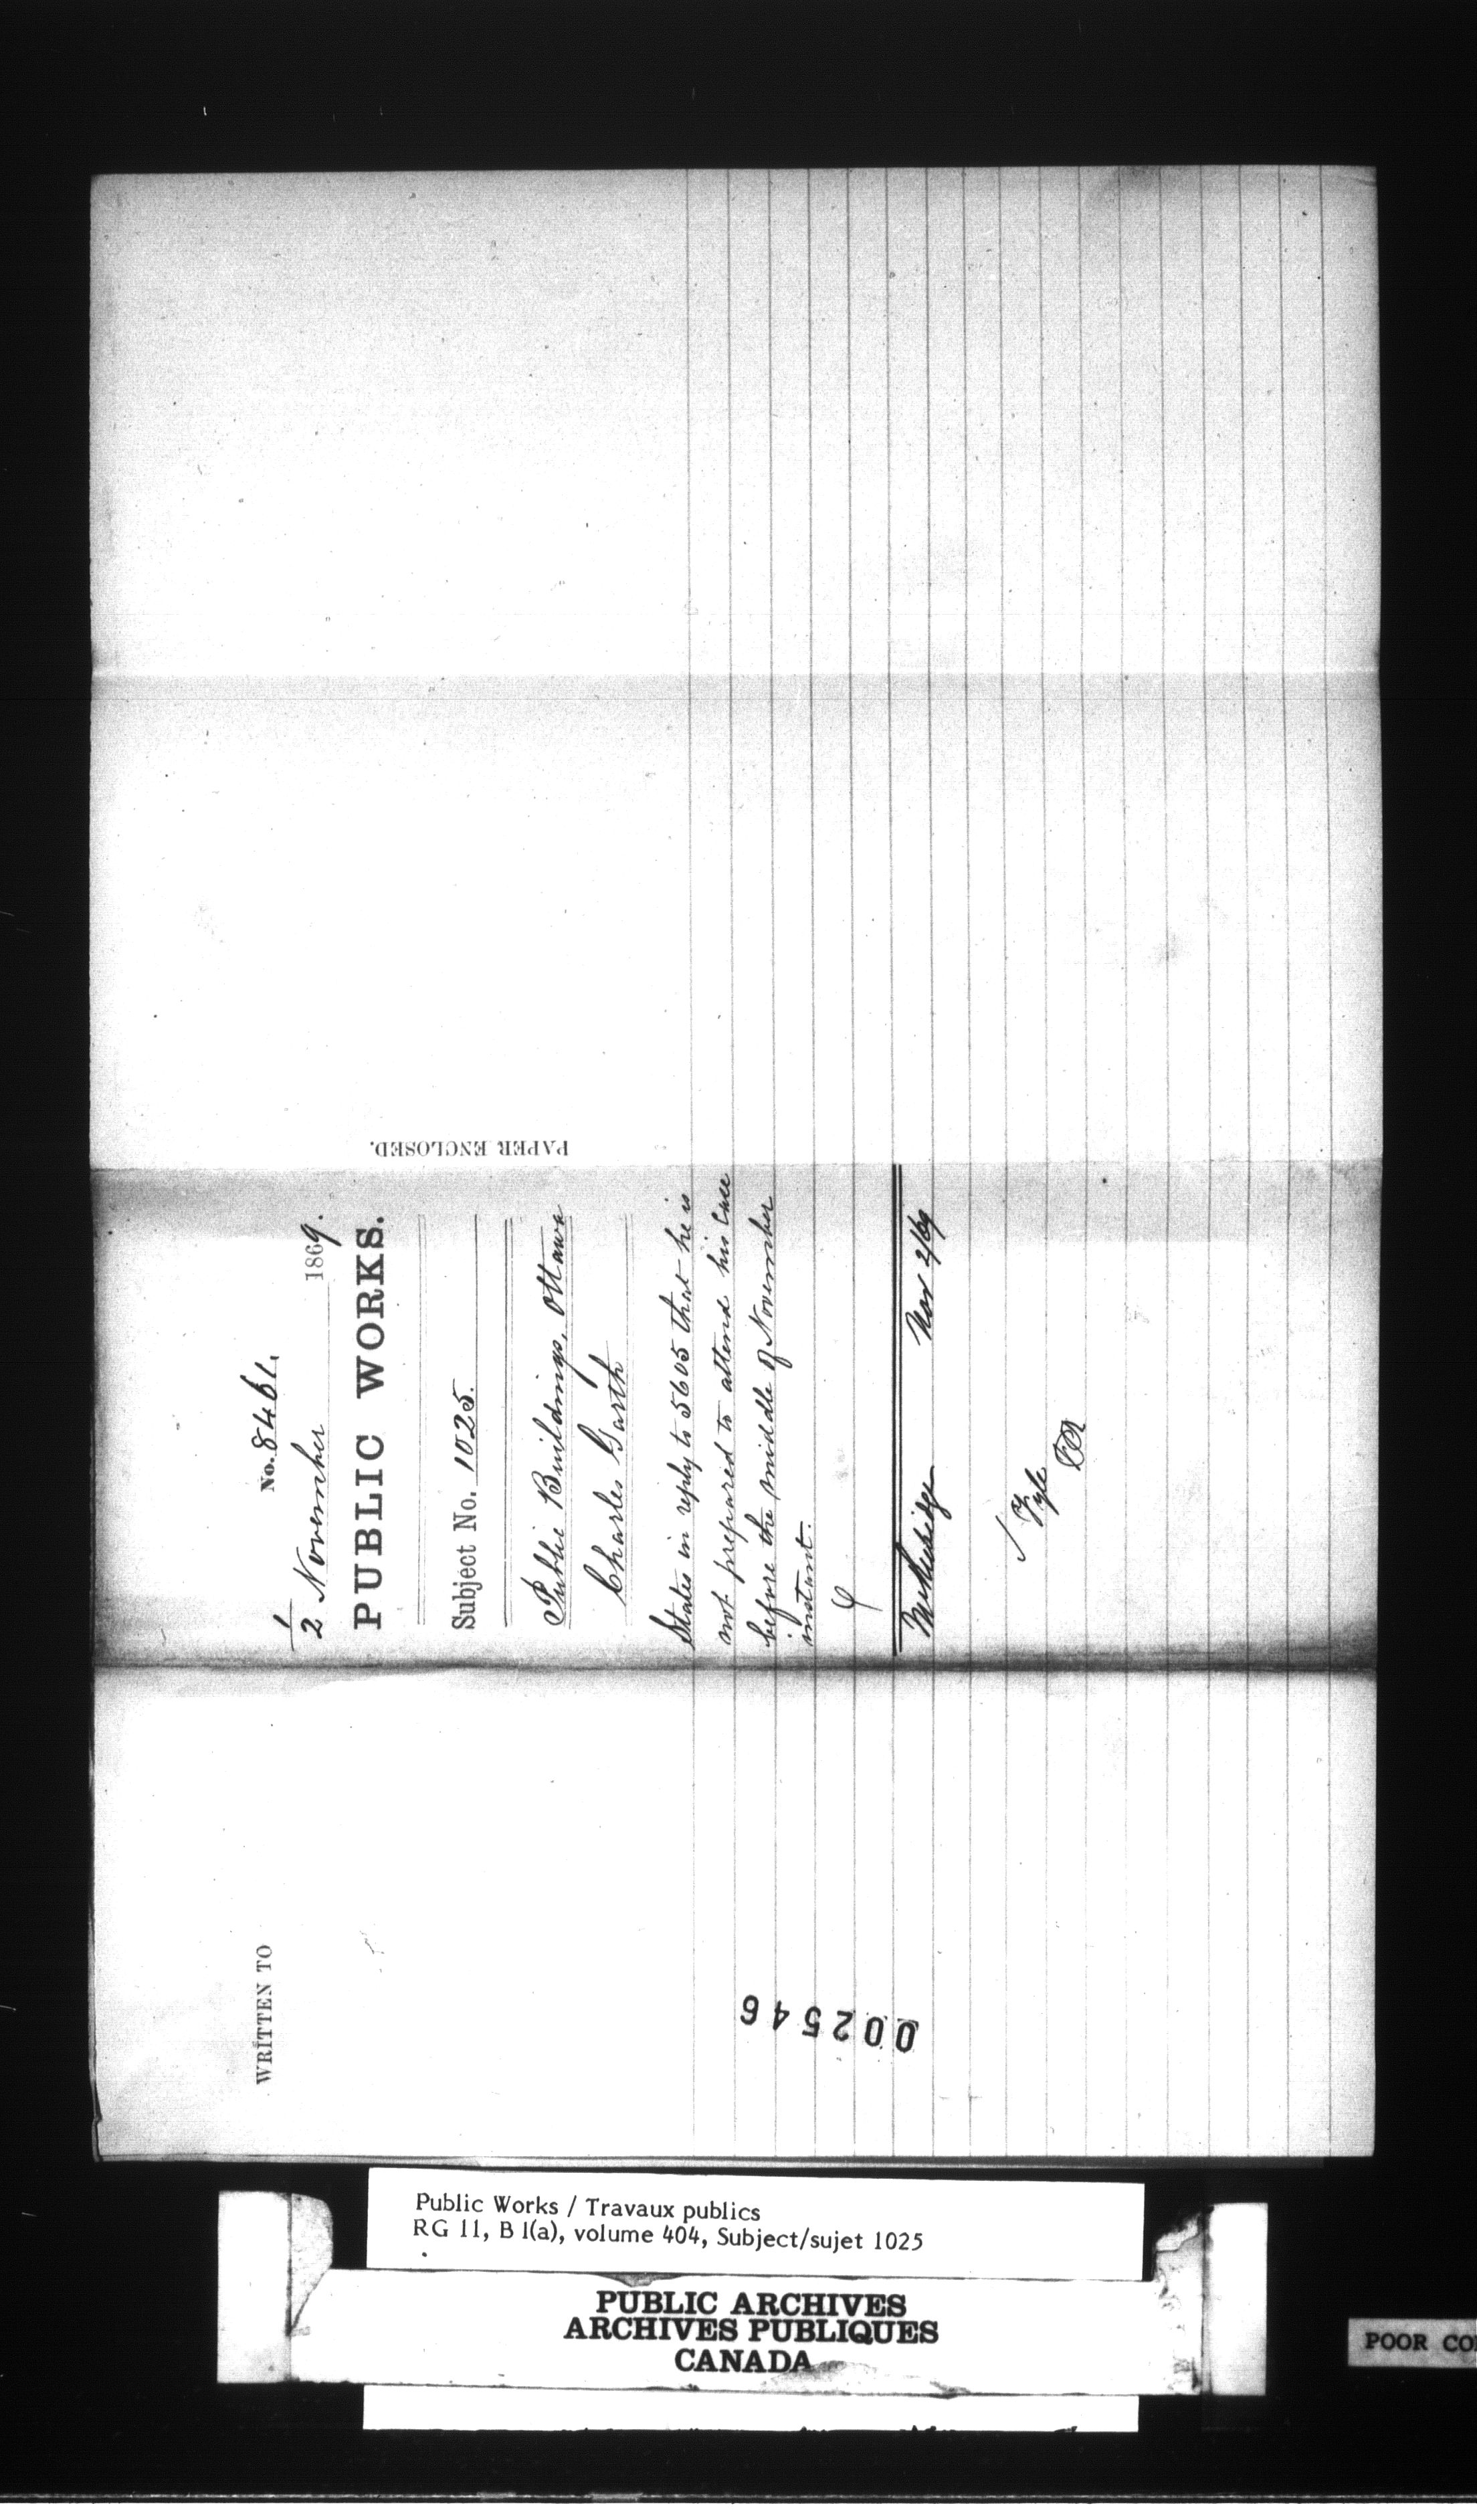 No. 8461.
1
2 November 1869.
PUBLIC WORKS.
Subject No. 1025.
Public Buildings, Ottawa
Charles Garth
States in reply to 5605 that he is
not prepared to attend his case
before the middle of November
instant.
Nov 2/69
Fyle
PAPER ENCLOSED.
WRITTEN TO
002546
Public Works / Travaux publics
RG 11, B 1(a), volume 404, Subject/sujet 1025
PUBLIC ARCHIVES
ARCHIVES PUBLIQUES
CANADA
POOR CO